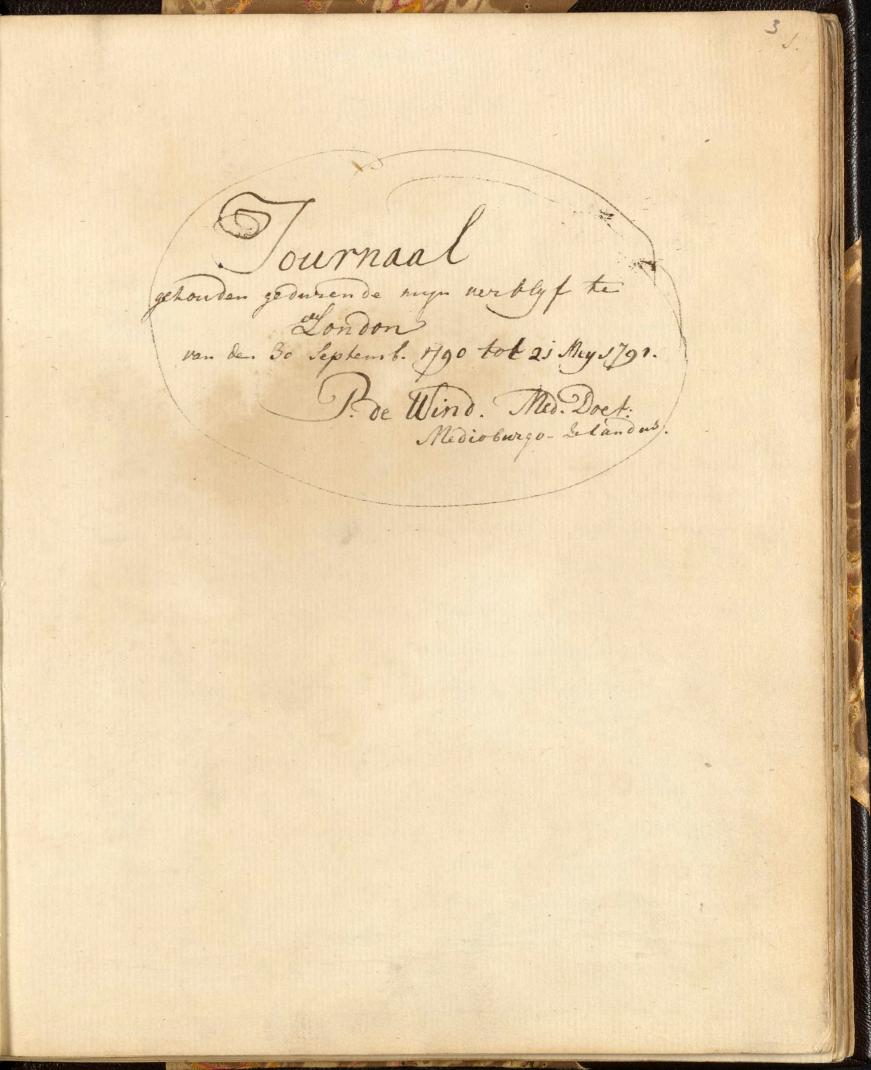 3
1.
Journaal
gehouden gedurende myn verblyf te
London
van den 30 Septemb. 1790 tot 21 Mey 1791.
P. de Wind. Med. Doct:
Medioburgo-Zelandus.